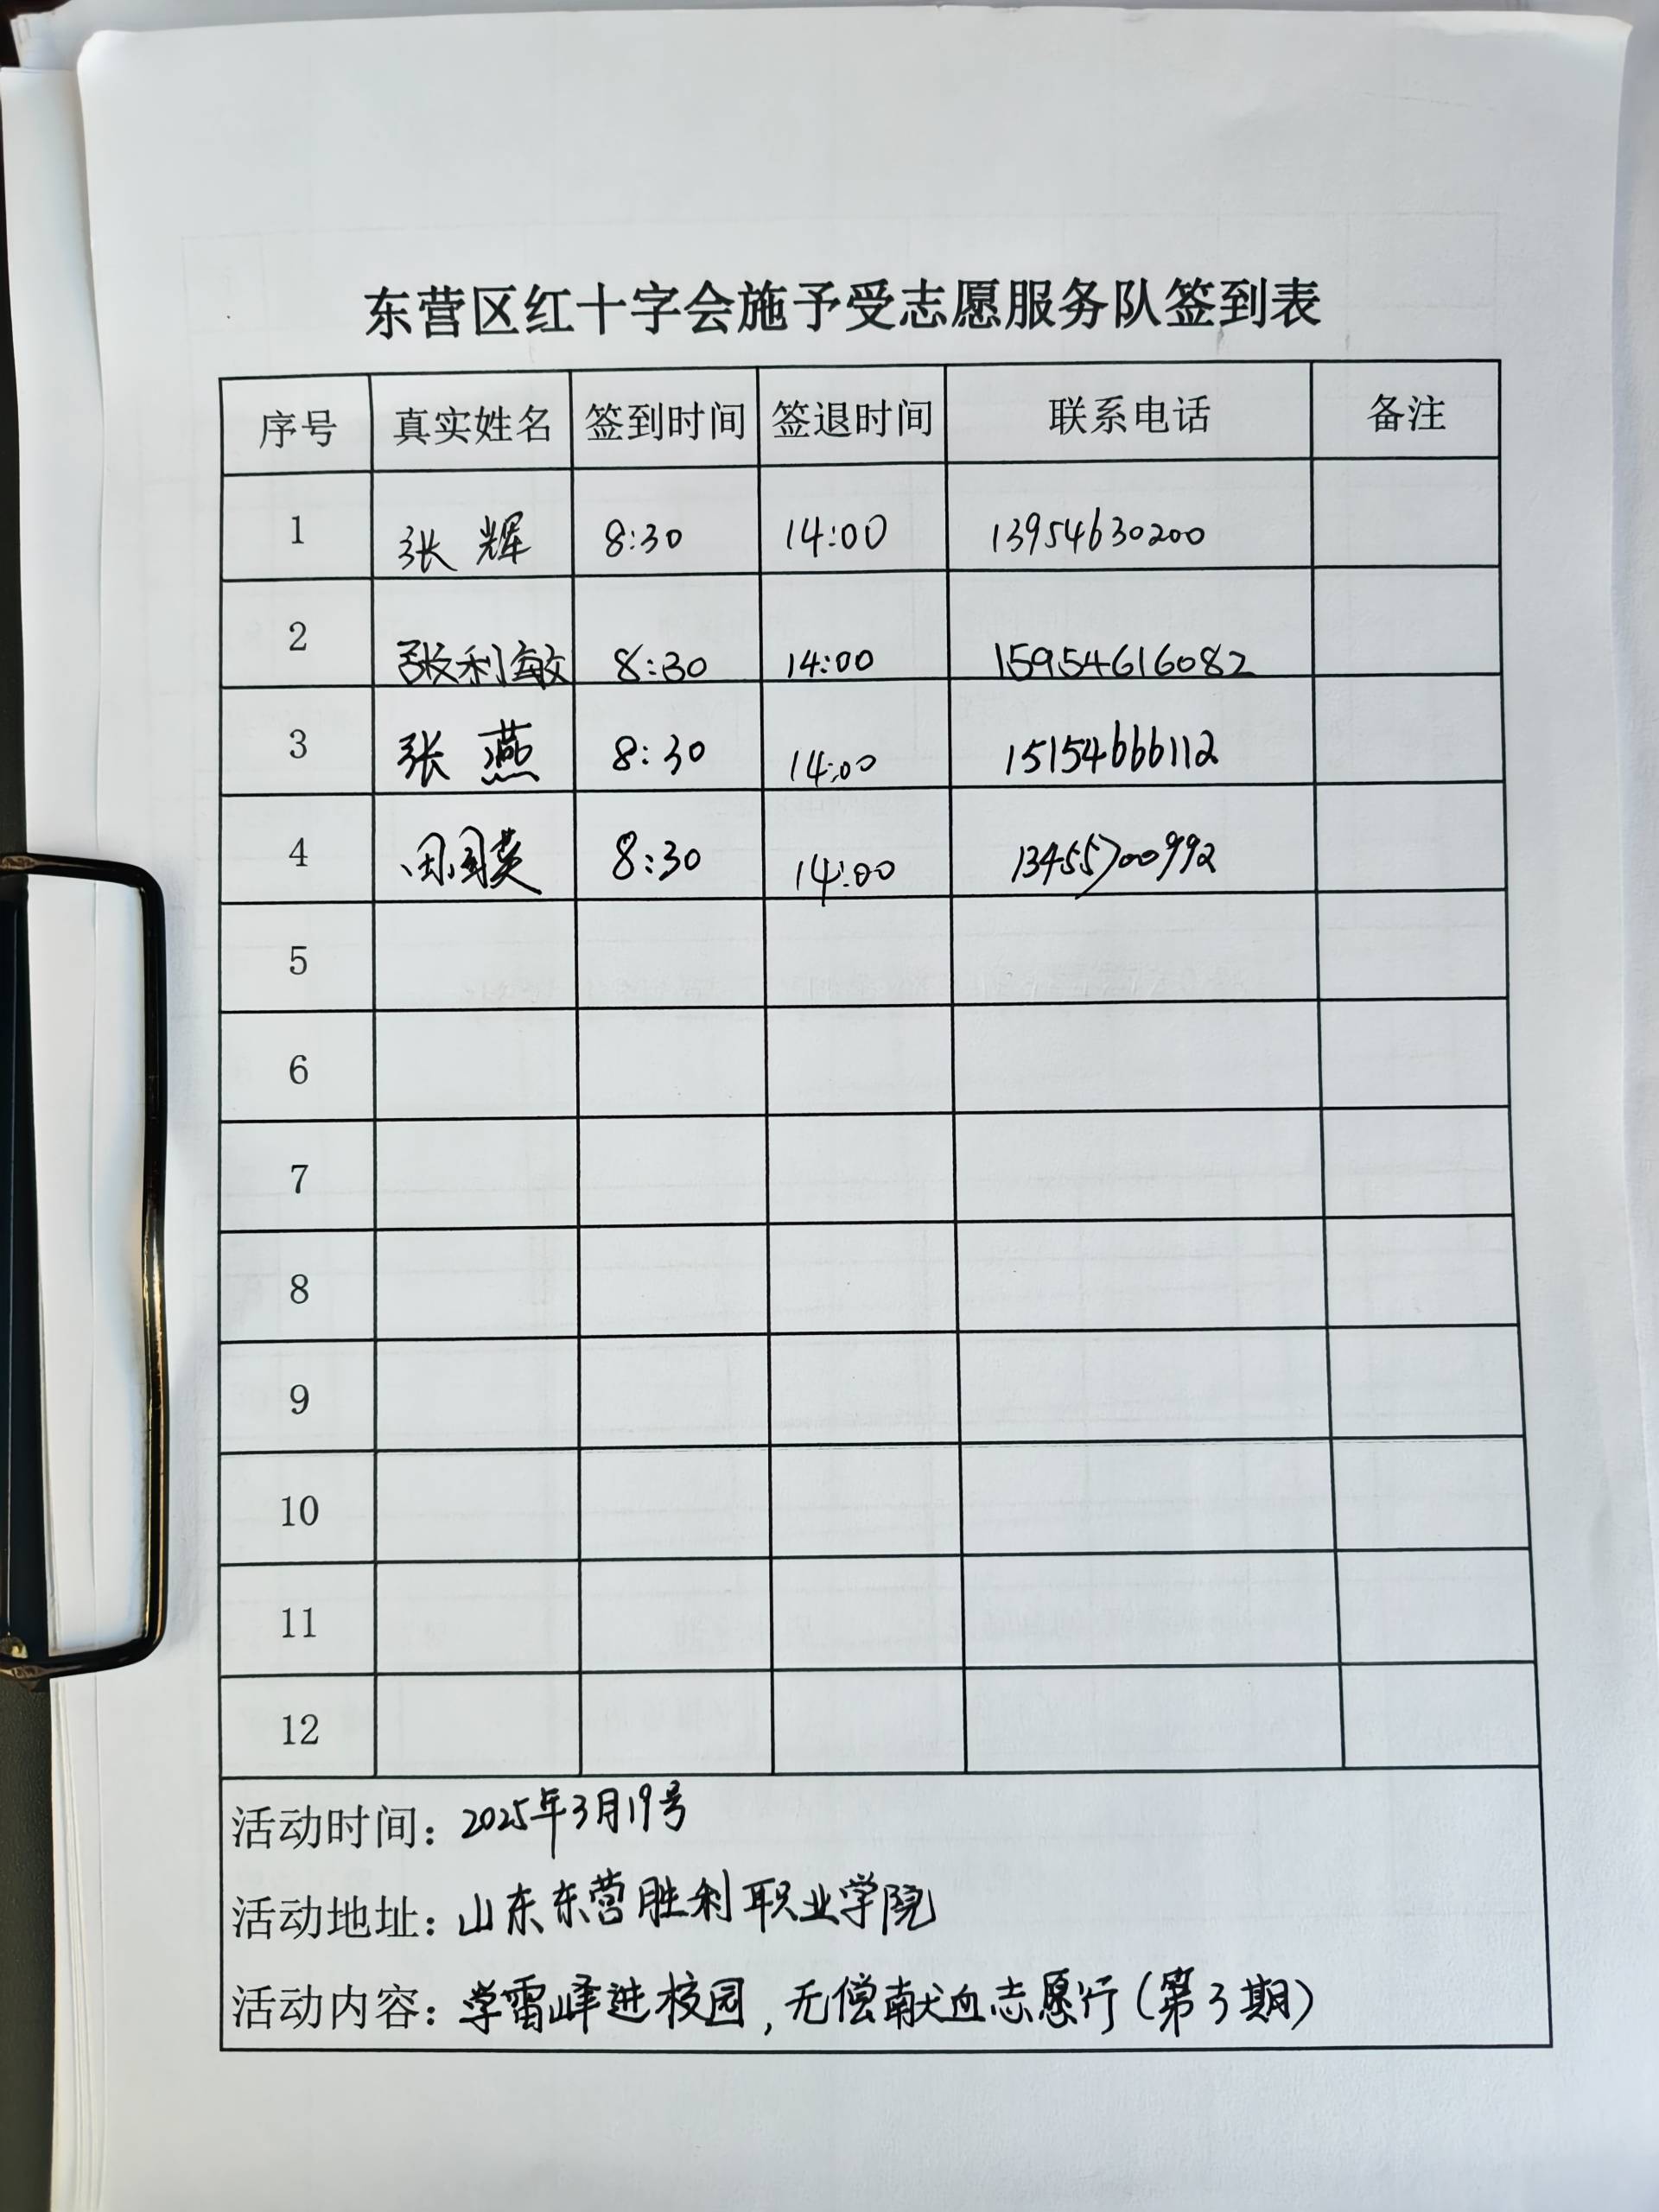 东营区红十字会施予受志愿服务队签到表
序号 真实姓名 签到时间 签退时间 联系电话 备注
1 张辉 8:30 14:00 13954630200
2 张利敏 8:30 14:00 15954616082
3 张燕 8:30 14:00 15154666112
4 田国英 8:30 14:00 13455700992
5
6
7
8
9
10
11
12
活动时间：2025年3月19号
活动地址：山东东营胜利职业学院
活动内容：学雷峰进校园，无偿献血志愿行（第3期）